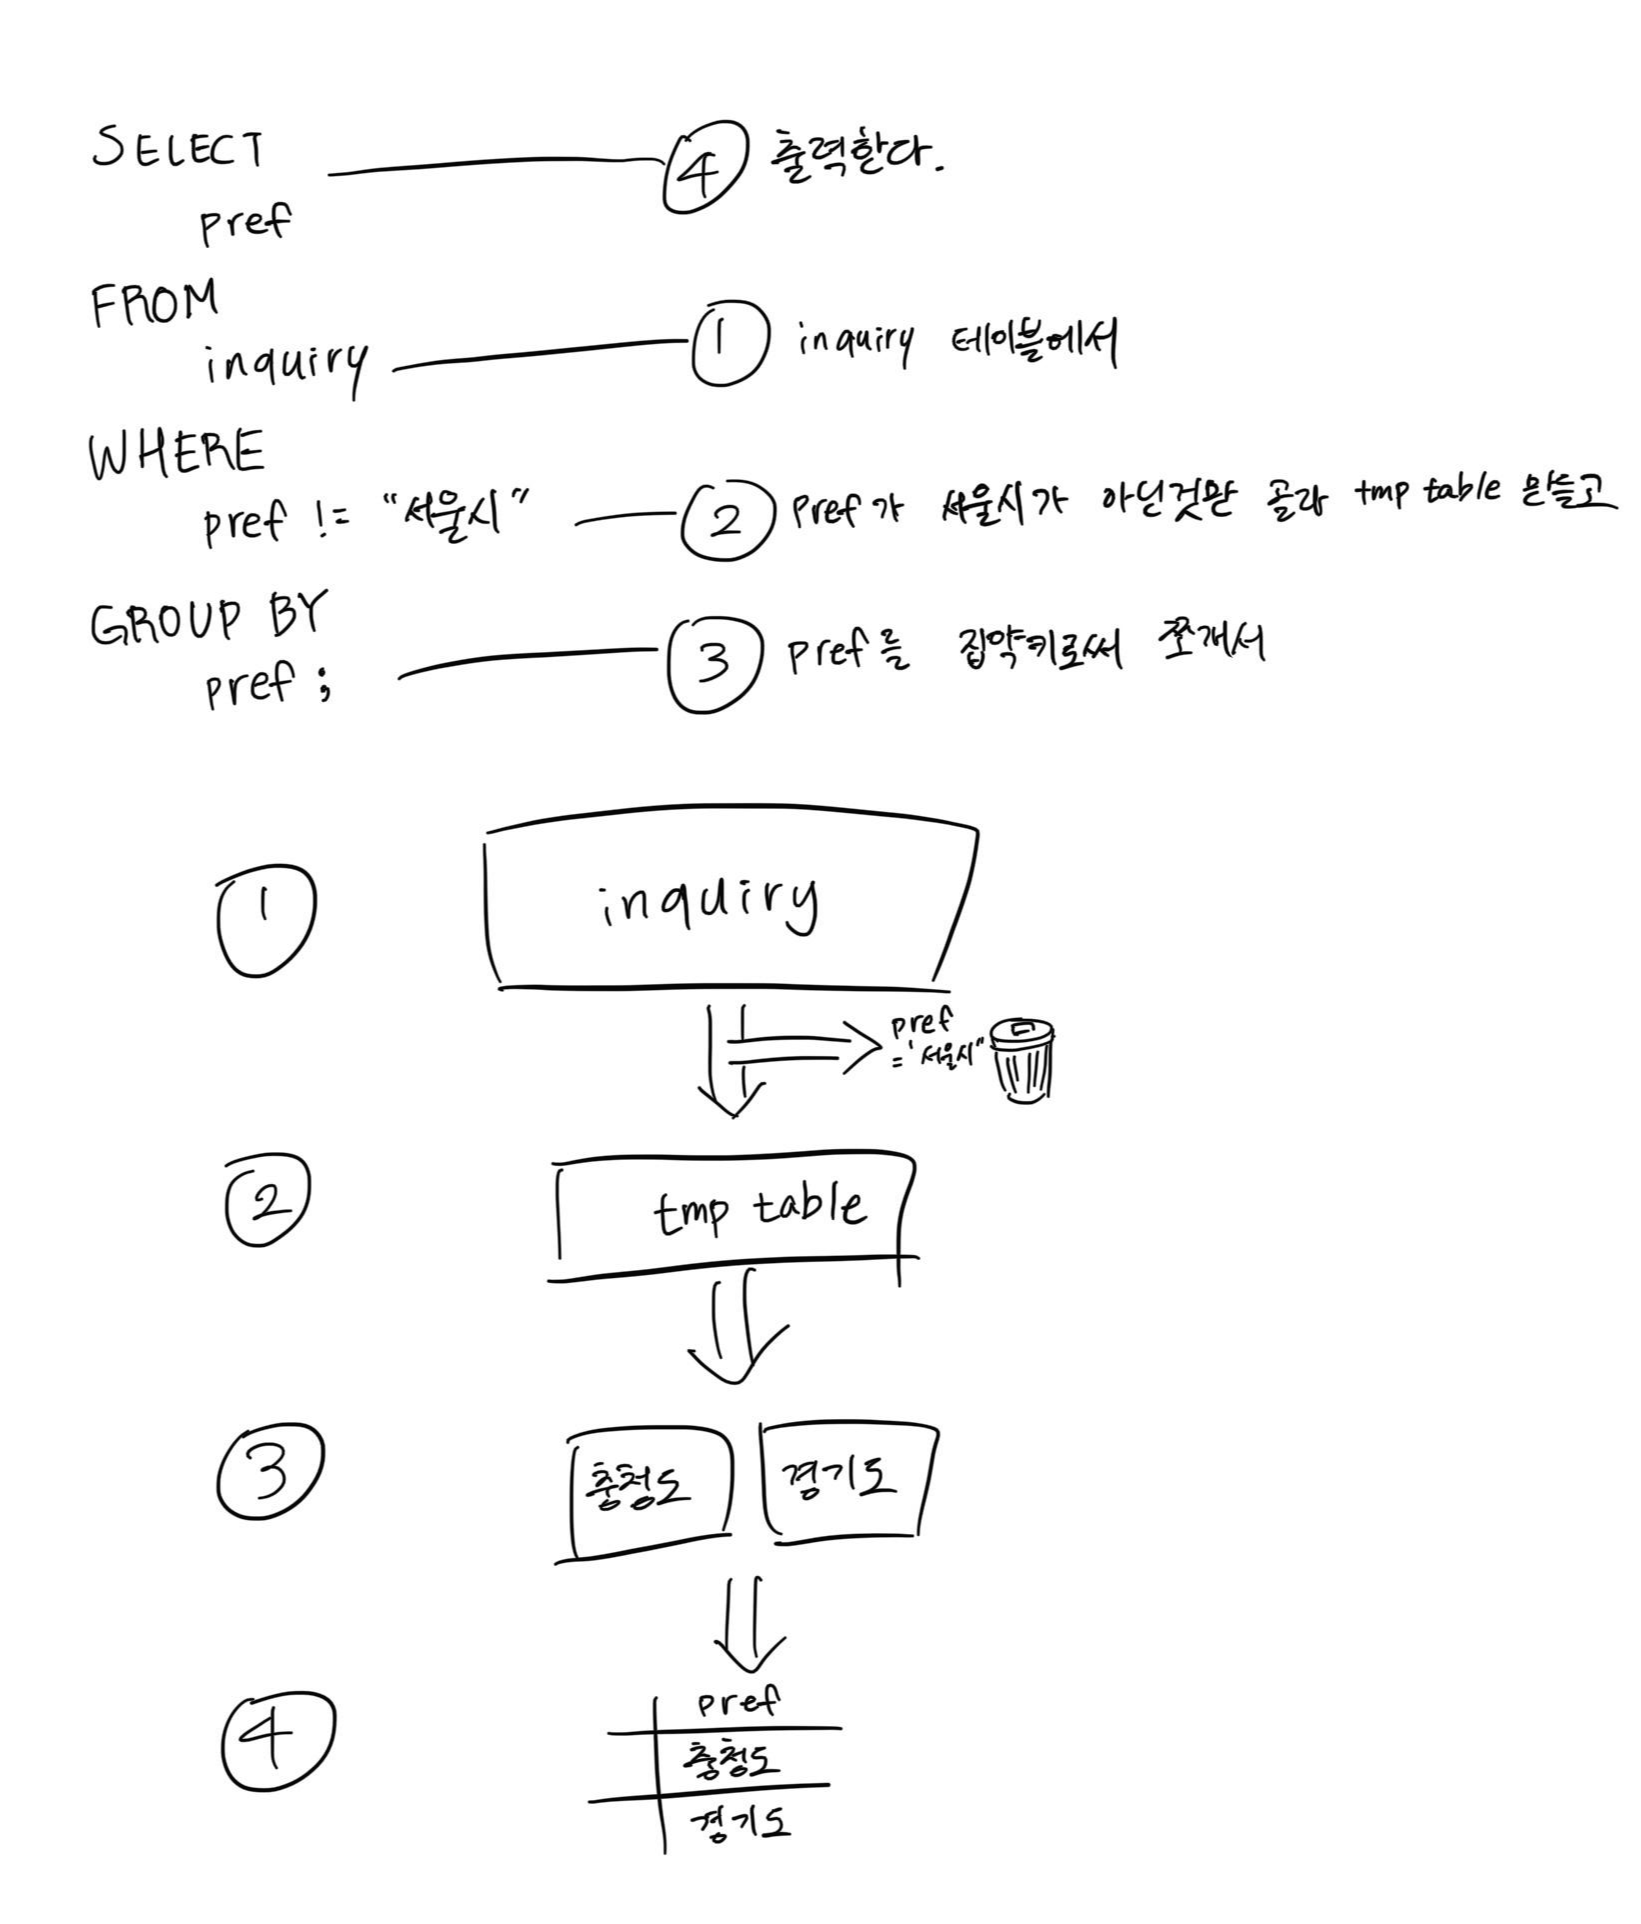 SELECT ④ 출력한다.
pref
FROM
inquiry ① inquiry 테이블에서
WHERE
pref != "서울시" ② pref가 서울시가 아닌것만 골라 tmp table 만들고
GROUP BY
pref ; ③ pref를 집약키로써 쪼개서
① inquiry
pref
="서울시"
② tmp table
③ 충청도 경기도
④ pref
충청도
경기도